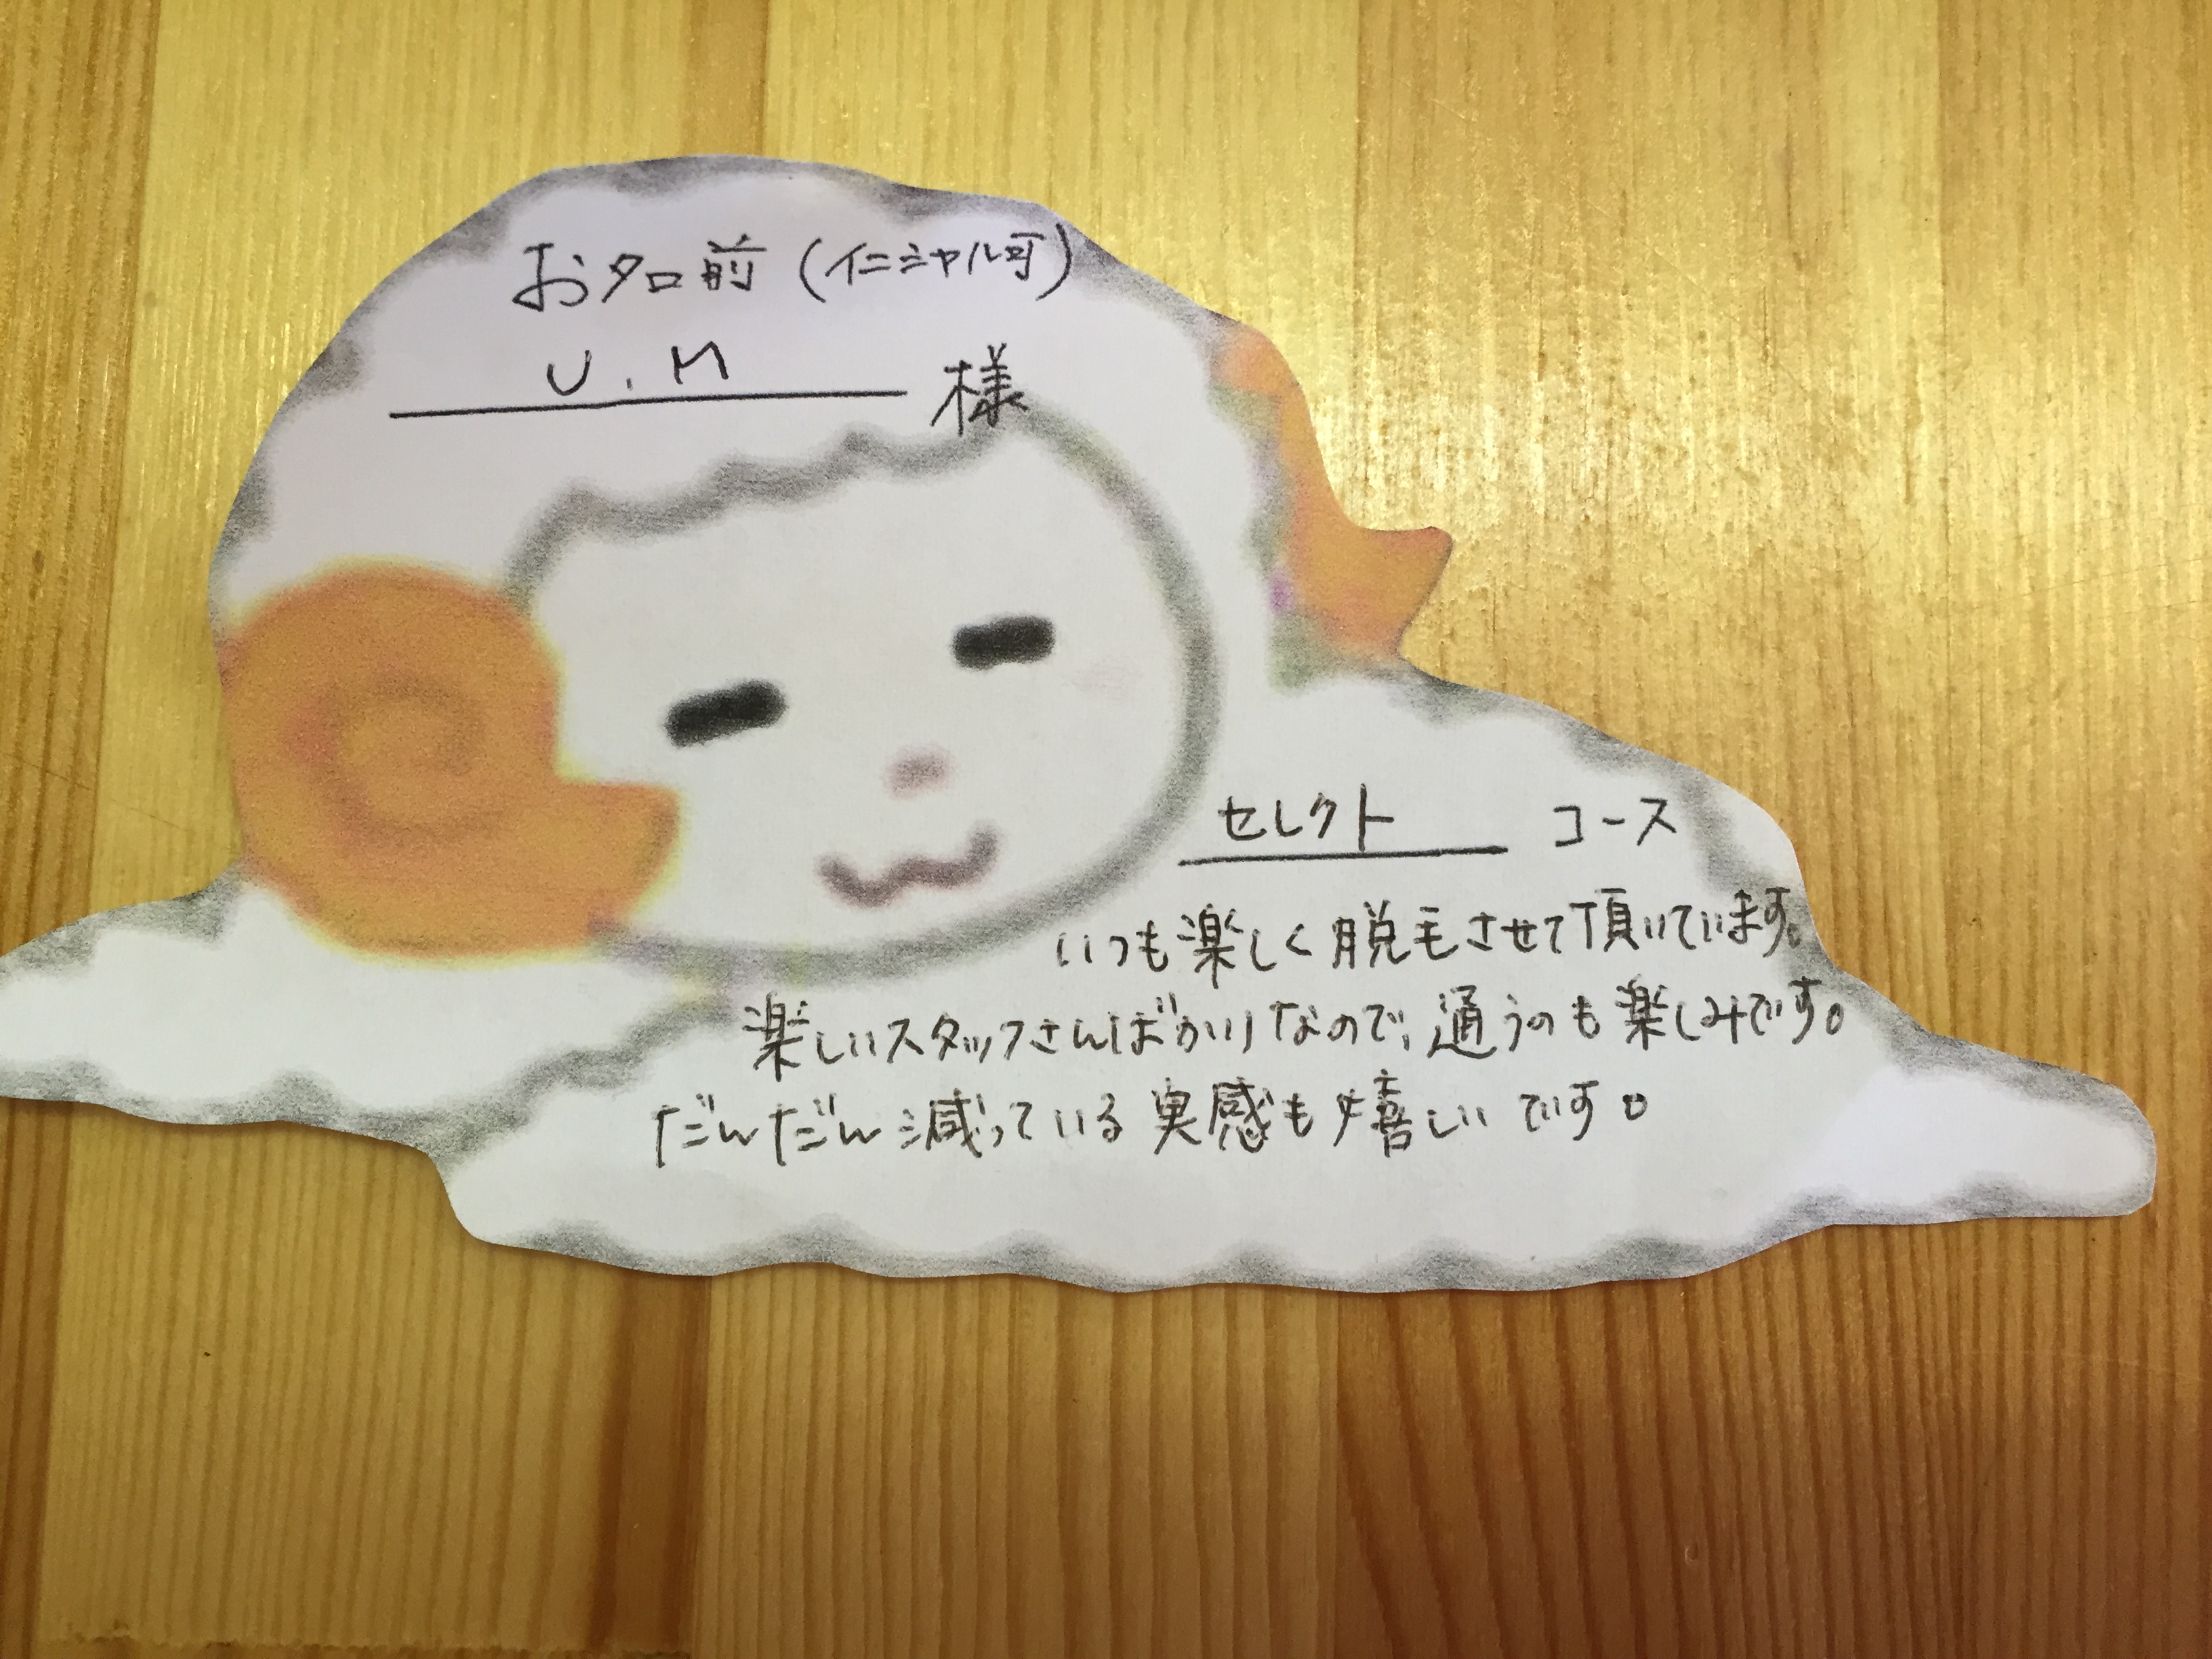 お名前（イニシャル可）
U.M 様
セレクト コース
いつも楽しく脱毛させて頂いています。
楽しいスタッフさんばかりなので、通うのも楽しみです。
だんだん減っている実感も嬉しいです。